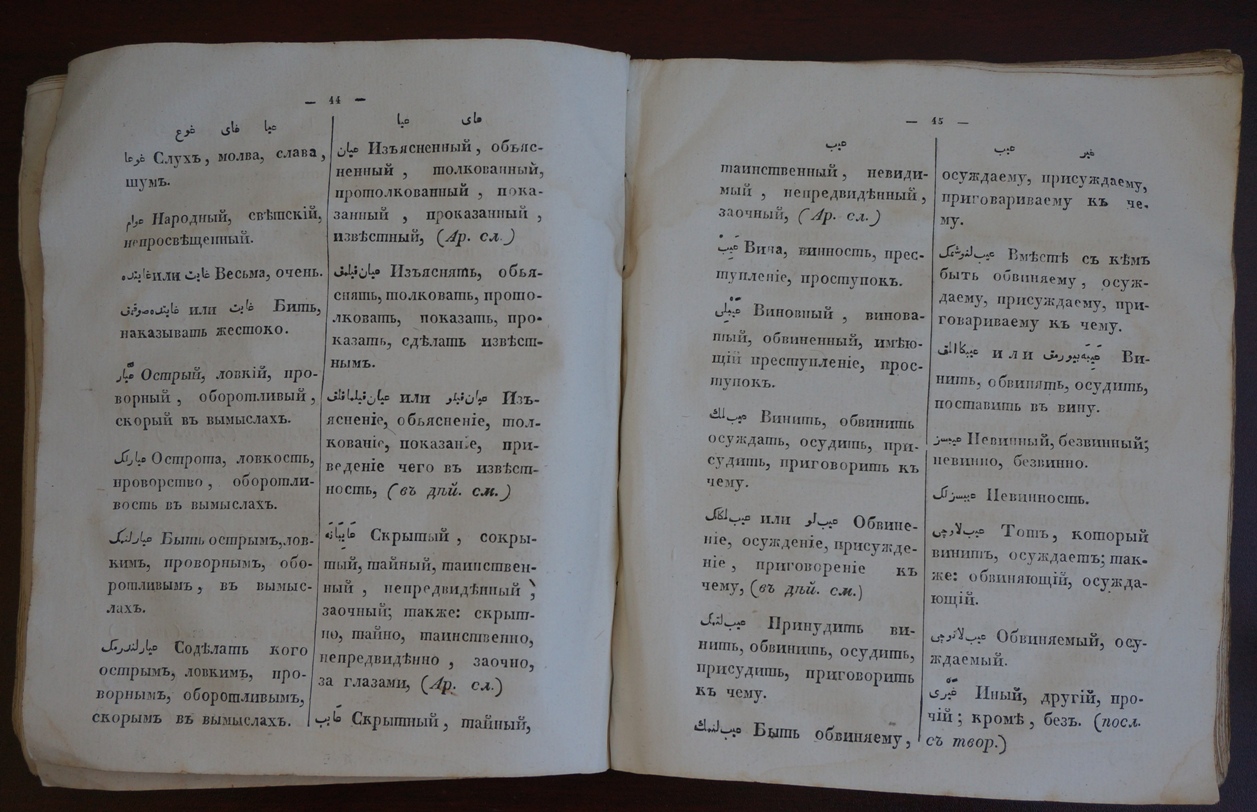 — 44 —
عيا غاى غوع
غوعا Слухъ, молва, слава,
шумъ.
عوام Народный, свѣтскій,
непросвѣщенный.
или غايت Весьма, очень.
или غايت Бить,
наказывать жестоко.
عيّار Острый, ловкій, про-
ворный, оборотливый,
скорый въ вымыслахъ.
عيارلك Острота, ловкость,
проворство, оборотли-
вость въ вымыслахъ.
عيارلنمك Быть острымъ, лов-
кимъ, проворнымъ, обо-
ротливымъ, въ вымыс-
лахъ.
عيارلندرمك Содѣлать кого
острымъ, ловкимъ, про-
ворнымъ, оборотливымъ,
скорымъ въ вымыслахъ.
غاى عيا
عيان Изъясненный, объяс-
ненный, толкованный,
протолкованный, пока-
занный, проказанный,
извѣстный, (Ар. сл.)
عيان قيلمق Изъяснять, объя-
снять, толковать, прото-
лковать, показать, про-
казать, сдѣлать извѣст-
нымъ.
عيان قيلماقلق или عيان قيلو Изъ-
ясненіе, объясненіе, тол-
кованіе, показаніе, при-
веденіе чего въ извѣст-
ность, (въ дѣй. см.)
غايبانه Скрытый, сокры-
тый, тайный, таинствен-
ный, непредвидѣнный,
заочный; также: скрыт-
но, тайно, таинственно,
непредвидѣнно, заочно,
за глазами, (Ар. сл.)
غايب Скрытный, тайный,
— 45 —
عيب
таинственный, невиди-
мый, непредвидѣнный,
заочный, (Ар. сл.)
عيب Вина, винность, прес-
тупленіе, проступокъ.
عيبلى Виновный, винова-
тый, обвиненный, имѣю-
щій преступленіе, прос-
тупокъ.
عيب‌لمك Винить, обвинить
осуждать, осудить, при-
судить, приговорить къ
чему.
عيب‌لمكلك или عيب‌لو Обвине-
ніе, осужденіе, присужде-
ніе, приговореніе къ
чему, (въ дѣй. см.)
عيب‌لتمك Принудить ви-
нить, обвинить, осудить,
присудить, приговорить
къ чему.
عيب‌لنمك Быть обвиняему,
عيب غير
осуждаему, присуждаему,
приговариваему къ че-
му.
عيب‌لنوشمك Вмѣстѣ съ кѣмъ
быть обвиняему, осуж-
даему, присуждаему, при-
говариваему къ чему.
или عيبه بيورمق Ви-
нить, обвинять, осудить,
поставить въ вину.
عيبسز Невинный, безвинный;
невинно, безвинно.
عيبسزلك Невинность.
عيب‌لاوچى Тотъ, который
винитъ, осуждаетъ; так-
же: обвиняющій, осужда-
ющій.
عيب‌لانوچى Обвиняемый, осу-
ждаемый.
غيرى Иный, другій, про-
чій; кромѣ, безъ. (посл.
съ твор.)